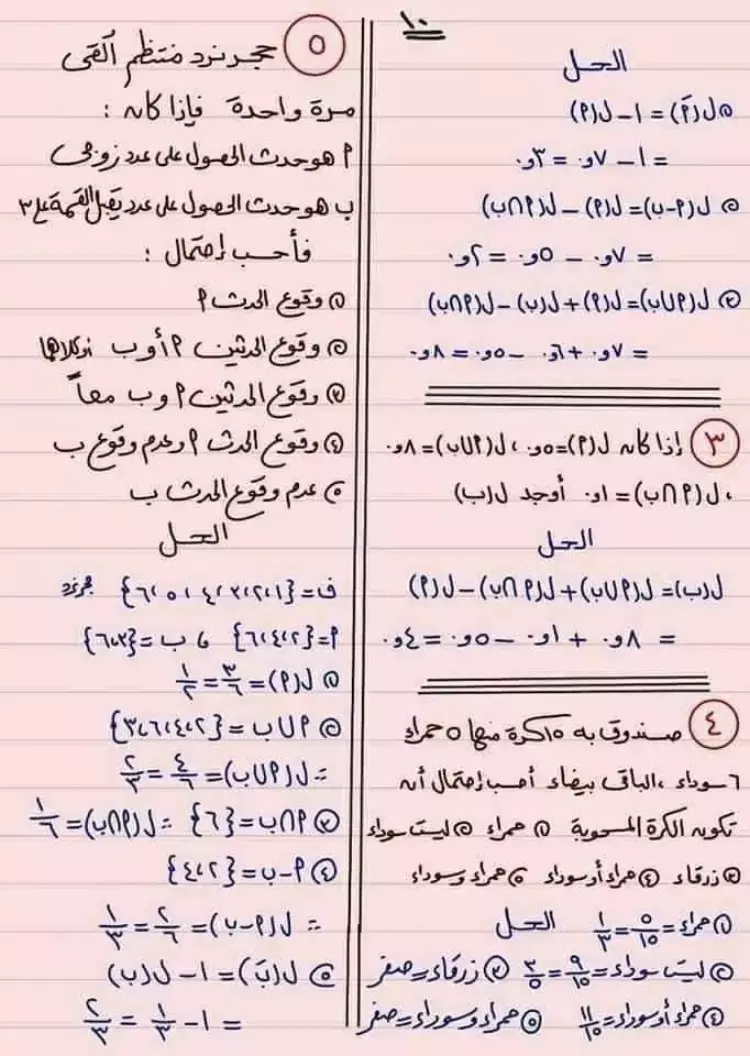 ١٠
الحل
١) ل(أَ) = ١ - ل(أ)
= ١ - ٧و٠ = ٣و٠
٢) ل(أ-ب) = ل(أ) - ل(أ∩ب)
= ٧و٠ - ٥و٠ = ٢و٠
٣) ل(أ∪ب) = ل(أ) + ل(ب) - ل(أ∩ب)
= ٧و٠ + ٦و٠ - ٥و٠ = ٨و٠
٣ إذا كان ل(أ) = ٥و٠ ، ل(أ∪ب) = ٨و٠
، ل(أ∩ب) = ١و٠ أوجد ل(ب)
الحل
ل(ب) = ل(أ∪ب) + ل(أ∩ب) - ل(أ)
= ٨و٠ + ١و٠ - ٥و٠ = ٤و٠
٤ صندوق به ١٥ كرة منها ٥ حمراء
٦ سوداء ، الباقى بيضاء أحسب إحتمال أن
تكون الكرة المسحوبة ١) حمراء ٢) ليست سوداء
٣) زرقاء ٤) حمراء أو سوداء ٥) حمراء وسوداء
الحل
١) حمراء = ٥/١٥ = ١/٣
٢) ليست سوداء = ٩/١٥ = ٣/٥ ٣) زرقاء = صفر
٤) حمراء أو سوداء = ١١/١٥ ٥) حمراء وسوداء = صفر
٥ حجر نرد منتظم ألقى
مرة واحدة فإذا كان :
أ هو حدث الحصول على عدد زوجى
ب هو حدث الحصول على عدد يقبل القسمة على ٣
فأحسب إحتمال :
١) وقوع الحدث أ
٢) وقوع الحدثين أ أو ب أو كلاها
٣) وقوع الحدثين أ و ب معاً
٤) وقوع الحدث أ وعدم وقوع ب
٥) عدم وقوع الحدث ب
الحل
ف = {١،٢،٣،٤،٥،٦} حجر نرد
أ = {٢،٤،٦} ، ب = {٣،٦}
١) ل(أ) = ٣/٦ = ١/٢
٢) أ∪ب = {٢،٤،٦،٣}
∴ ل(أ∪ب) = ٤/٦ = ٢/٣
٣) أ∩ب = {٦} ∴ ل(أ∩ب) = ١/٦
٤) أ-ب = {٢،٤}
∴ ل(أ-ب) = ٢/٦ = ١/٣
٥) ل(بَ) = ١ - ل(ب)
= ١ - ١/٣ = ٢/٣